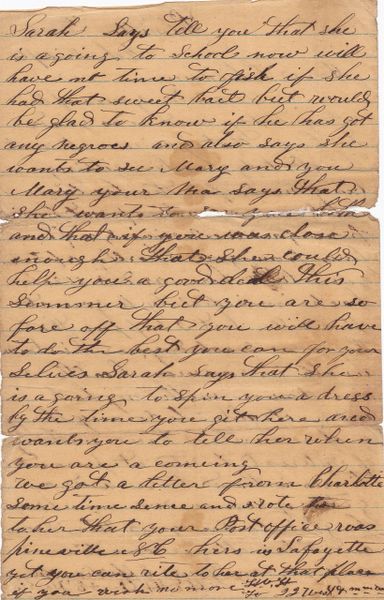 Sarah Says tell you that she
is a going to School now will
have not time to fish if she
had that sweet bait but would
be glad to know if he has got
any negroes and also says she
wants to see Mary and you
Mary your Ma says that
She wants to see your
and that if you was close
enough that she could
help you a good deal this
Summer but you are so
fare off that you will have
to do the best you can for your
Selves Sarah says that she
is a going to spin you a dress
by the time you git here and
wants you to tell her when
you are a comeing
we got a letter from Charlotte
some time sence and wrote
to her that your Post office was
pineville hers is Lafayette
yet you can rite to her at that place
if you wish no more